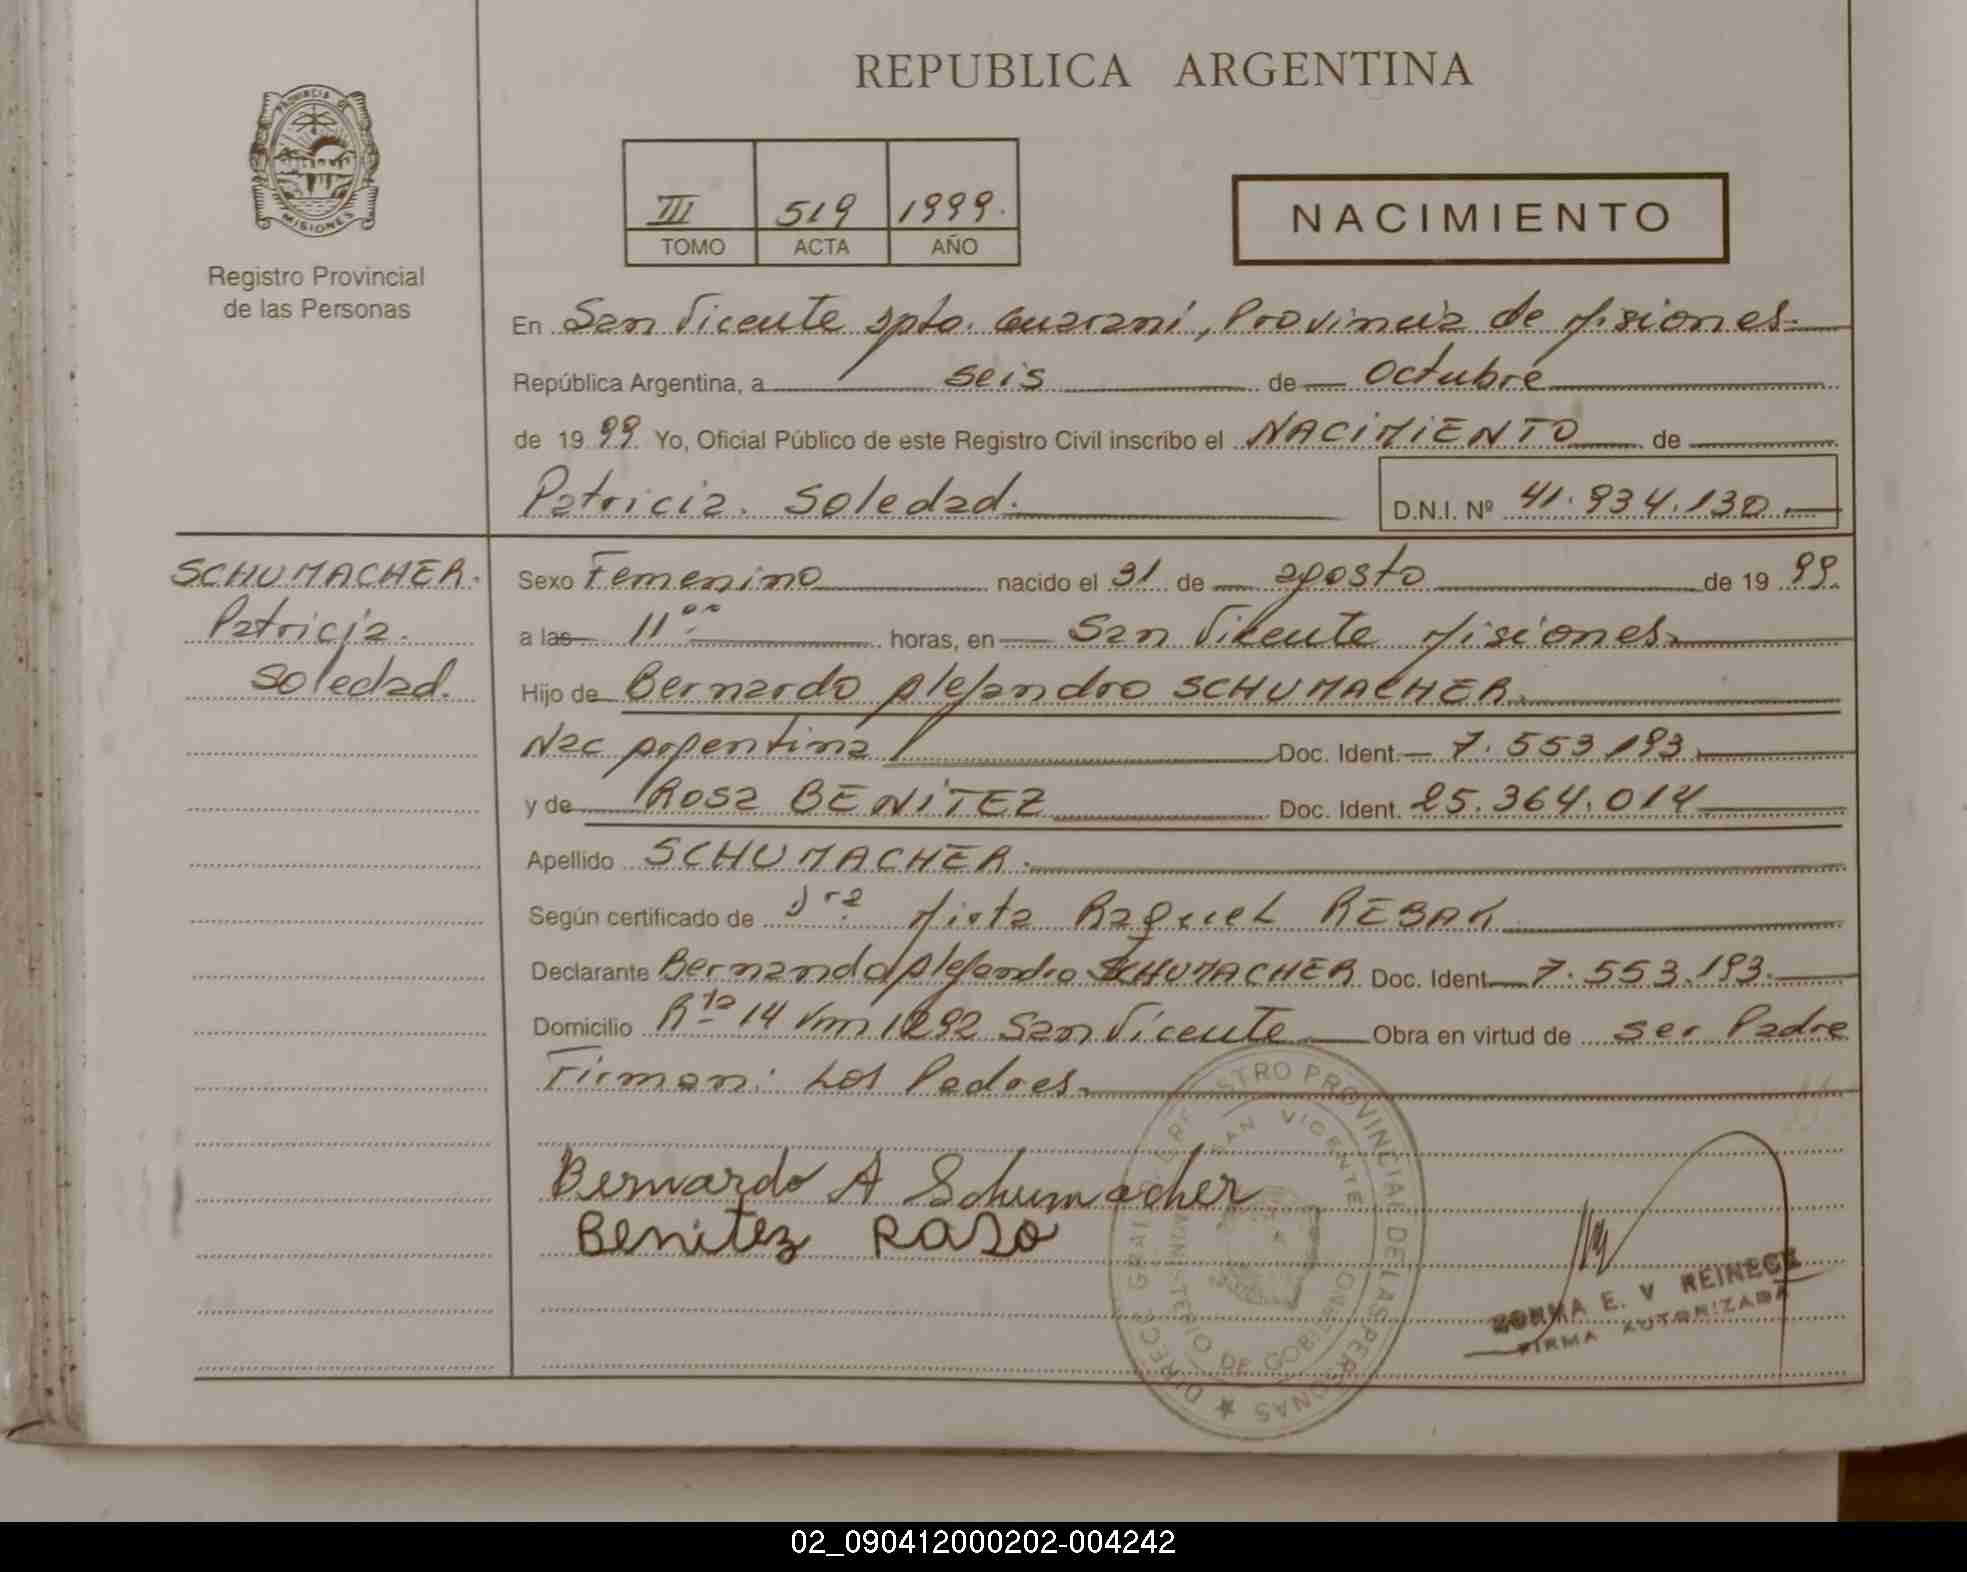 REPUBLICA ARGENTINA
PROVINCIA DE
MISIONES
Registro Provincial
de las Personas
III 519 1999.
TOMO ACTA AÑO
NACIMIENTO
En San Vicente Dpto. Guaraní, Provincia de Misiones.
República Argentina, a seis de Octubre
de 1999. Yo, Oficial Público de este Registro Civil inscribo el NACIMIENTO de
Patricia. Soledad.
D.N.I. Nº 41.934.130.
SCHUMACHER.
Patricia.
Soledad.
Sexo Femenino nacido el 31 de agosto de 1999.
a las 11 horas, en San Vicente Misiones.
Hijo de Bernardo Alejandro SCHUMACHER.
Nac Argentina Doc. Ident. 7.553.193.
y de Rosa BENITEZ Doc. Ident. 25.364.014
Apellido SCHUMACHER.
Según certificado de Raquel
Declarante Bernardo Alejandro SCHUMACHER Doc. Ident. 7.553.193.
Domicilio Rta 14 Km 1292 San Vicente Obra en virtud de ser Padre
Firman: Los Padres.
Bernardo A Schumacher
Benitez Raso
REGISTRO PROVINCIAL DE LAS PERSONAS
SAN VICENTE
MINISTERIO DE GOBIERNO
E. V REINECK
FIRMA AUTORIZADA
02_090412000202-004242